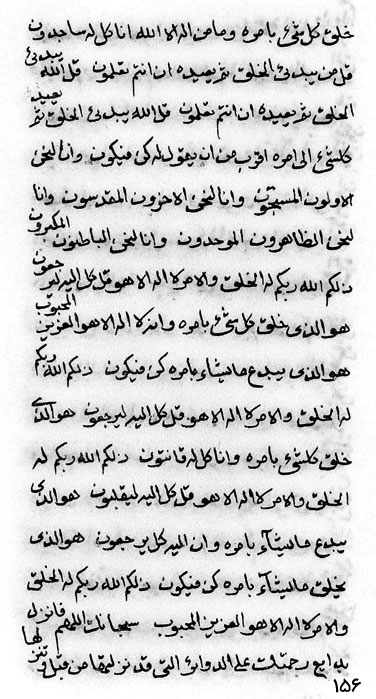 خلق کل شئ بامره وما من اله الا الله انا کل له ساجدون
قل من یبدئ الخلق ثم یعیده ان انتم تعلمون قل الله یبدئ
الخلق ثم یعیده ان انتم تعلمون قل الله یبدئ الخلق ثم یعیده
کلشئ الی امره اقرب من ان یقول له کن فیکون وانا لنحن
الاولون المسبحون وانا لنحن الاخرون المقدسون وانا
لنحن الظاهرون الموحدون وانا لنحن الباطنون المکبرون
ذلکم الله ربکم له الخلق والامر لا اله الا هو قل کل الیه لیرجعون
هو الذی خلق کل شئ بامره وانه لا اله الا هو العزیز المحبوب
هو الذی یبدع ما یشاء بامره کن فیکون ذلکم الله ربکم
له الخلق والامر لا اله الا هو قل کل الیه لیرجعون هو الذی
خلق کلشئ بامره وانا کل له قانتون ذلکم الله ربکم له
الخلق والامر لا اله الا هو قل کل الیه لیقلبون هو الذی
یبدع ما یشآء بامره وان الیه کل یرجعون هو الذی
یخلق ما یشآء بامره کن فیکون ذلکم الله ربکم له الخلق
والامر لا اله الا هو العزیز المحبوب سبحانک اللهم فانزل
بدایع رحمتک علی الدوائر التی قد نزلتها من قبل و تنزلها
۱۵۶